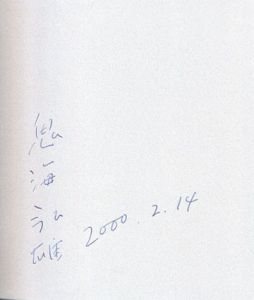 鬼海弘雄
2000.2.14